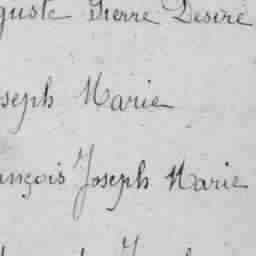 guste Pierre Desiré
seph Marie
ançois Joseph Marie